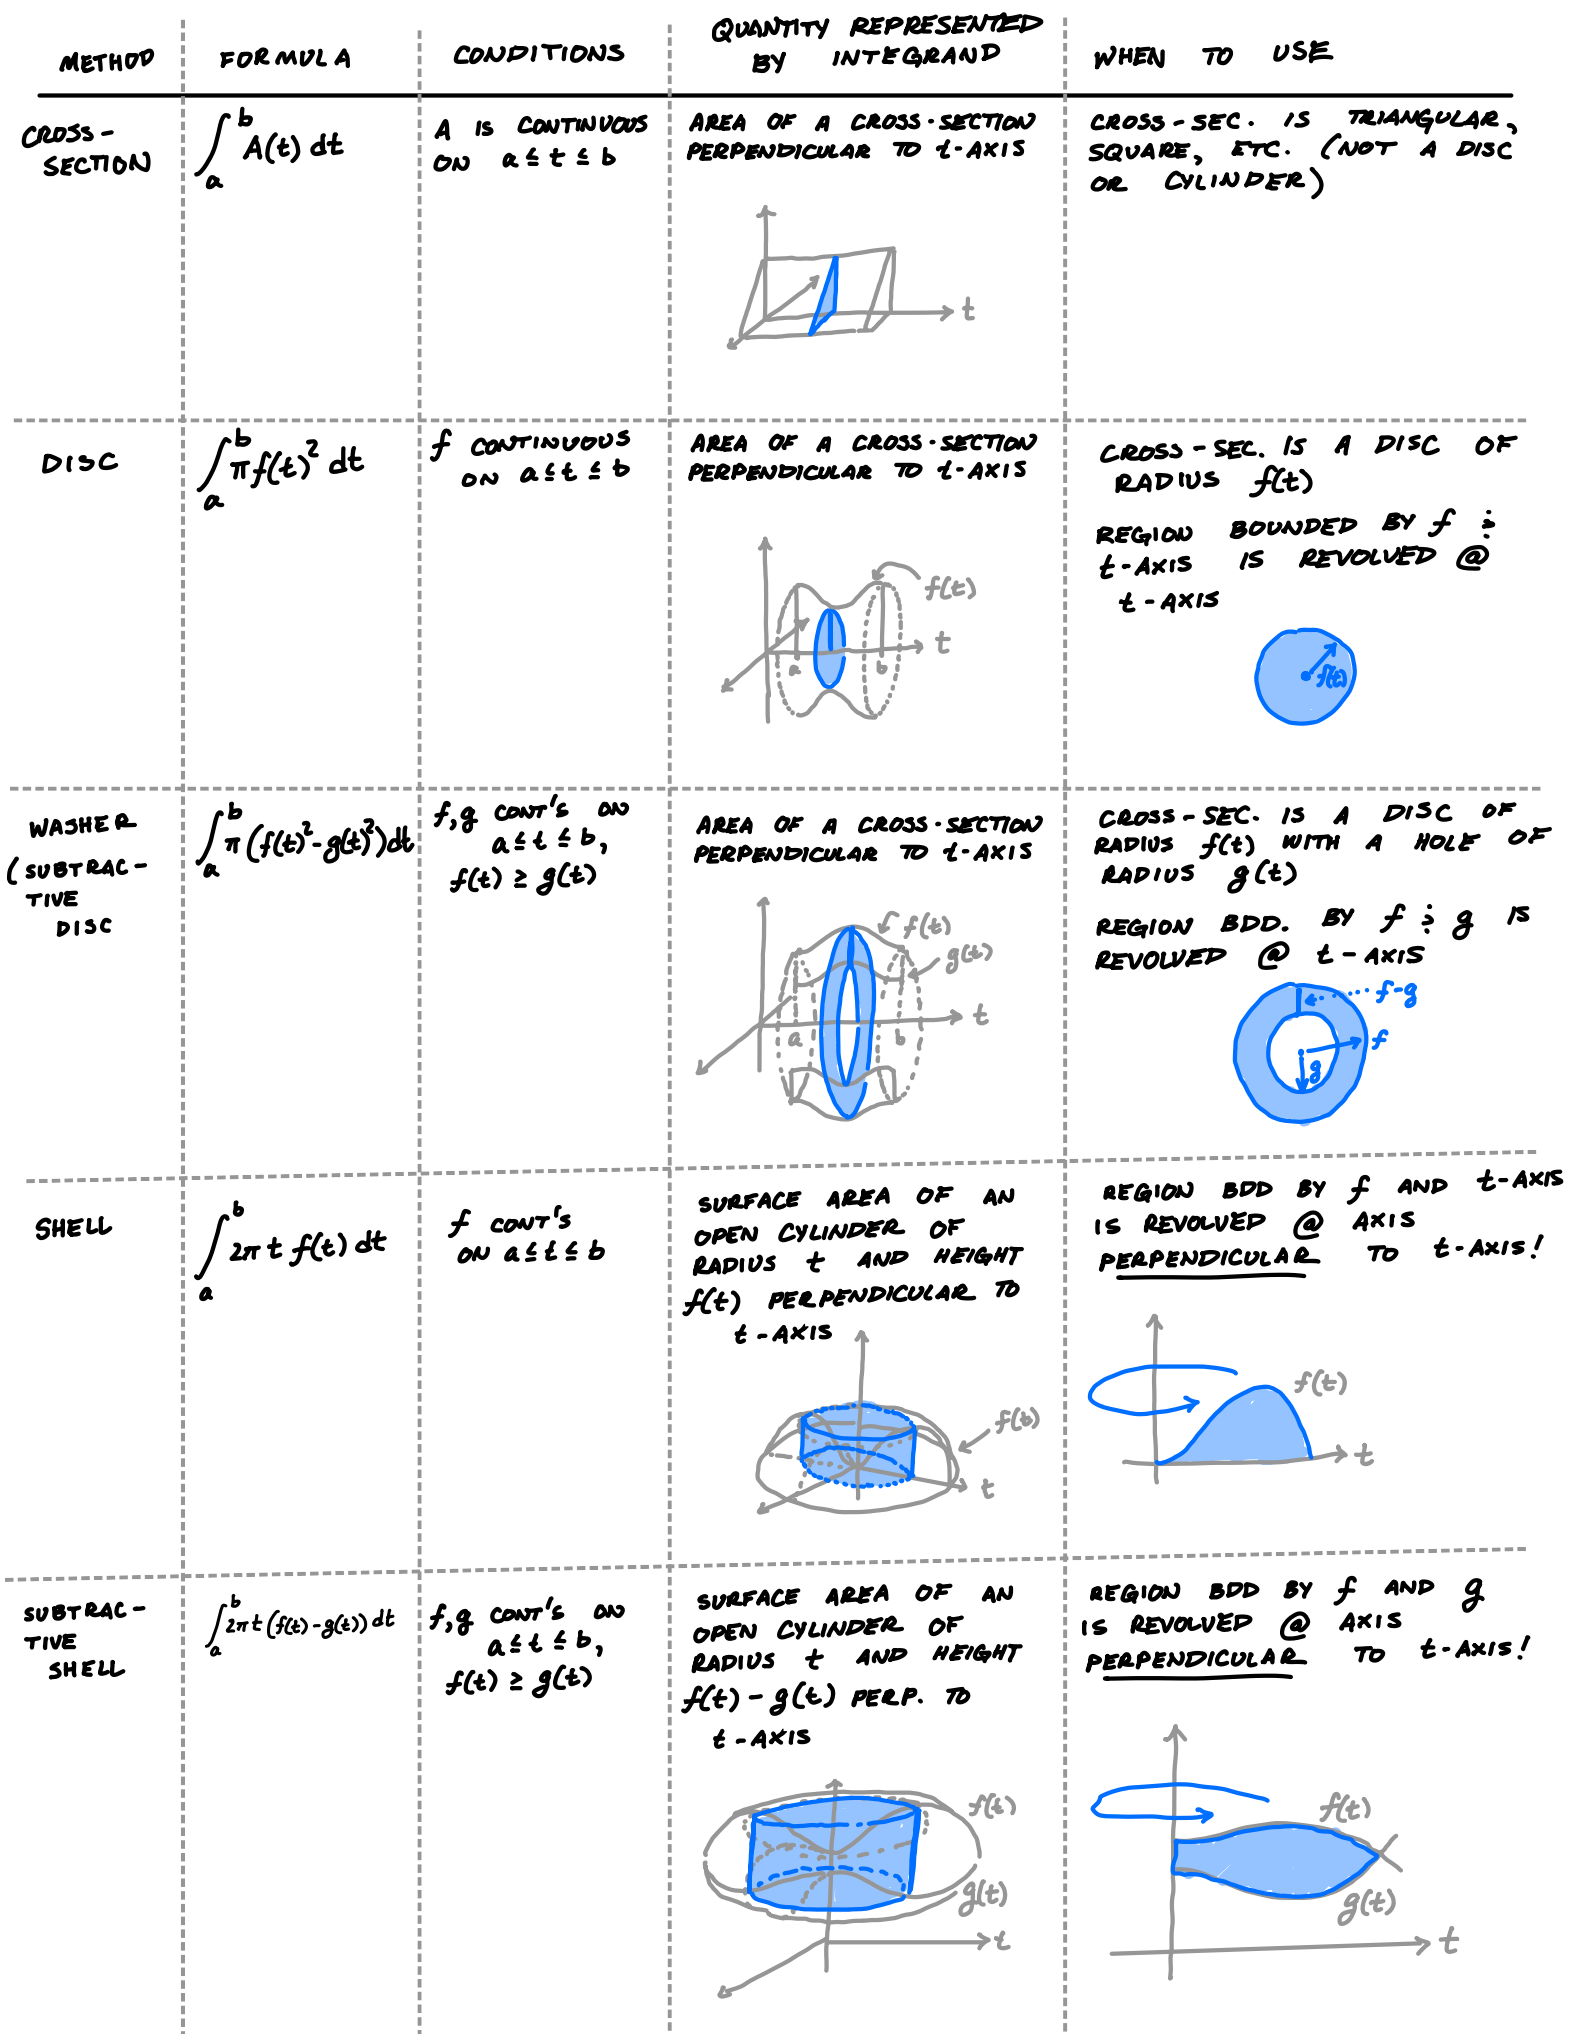 METHOD
FORMULA
CONDITIONS
QUANTITY REPRESENTED
BY INTEGRAND
WHEN TO USE
CROSS-
SECTION
∫_a^b A(t) dt
A IS CONTINUOUS
ON a ≤ t ≤ b
AREA OF A CROSS-SECTION
PERPENDICULAR TO t-AXIS
t
CROSS-SEC. IS TRIANGULAR,
SQUARE, ETC. (NOT A DISC
OR CYLINDER)
DISC
∫_a^b π f(t)² dt
f CONTINUOUS
ON a ≤ t ≤ b
AREA OF A CROSS-SECTION
PERPENDICULAR TO t-AXIS
f(t)
t
a
b
CROSS-SEC. IS A DISC OF
RADIUS f(t)
REGION BOUNDED BY f &
t-AXIS IS REVOLVED @
t-AXIS
f(t)
WASHER
(SUBTRAC-
TIVE
DISC
∫_a^b π (f(t)² - g(t)²) dt
f,g CONT'S ON
a ≤ t ≤ b,
f(t) ≥ g(t)
AREA OF A CROSS-SECTION
PERPENDICULAR TO t-AXIS
f(t)
g(t)
t
a
b
CROSS-SEC. IS A DISC OF
RADIUS f(t) WITH A HOLE OF
RADIUS g(t)
REGION BDD. BY f & g IS
REVOLVED @ t-AXIS
f-g
f
g
SHELL
∫_a^b 2π t f(t) dt
f CONT'S
ON a ≤ t ≤ b
SURFACE AREA OF AN
OPEN CYLINDER OF
RADIUS t AND HEIGHT
f(t) PERPENDICULAR TO
t-AXIS
f(b)
t
REGION BDD BY f AND t-AXIS
IS REVOLVED @ AXIS
PERPENDICULAR TO t-AXIS!
f(t)
t
SUBTRAC-
TIVE
SHELL
∫_a^b 2π t (f(t) - g(t)) dt
f,g CONT'S ON
a ≤ t ≤ b,
f(t) ≥ g(t)
SURFACE AREA OF AN
OPEN CYLINDER OF
RADIUS t AND HEIGHT
f(t) - g(t) PERP. TO
t-AXIS
f(t)
g(t)
t
REGION BDD BY f AND g
IS REVOLVED @ AXIS
PERPENDICULAR TO t-AXIS!
f(t)
g(t)
t